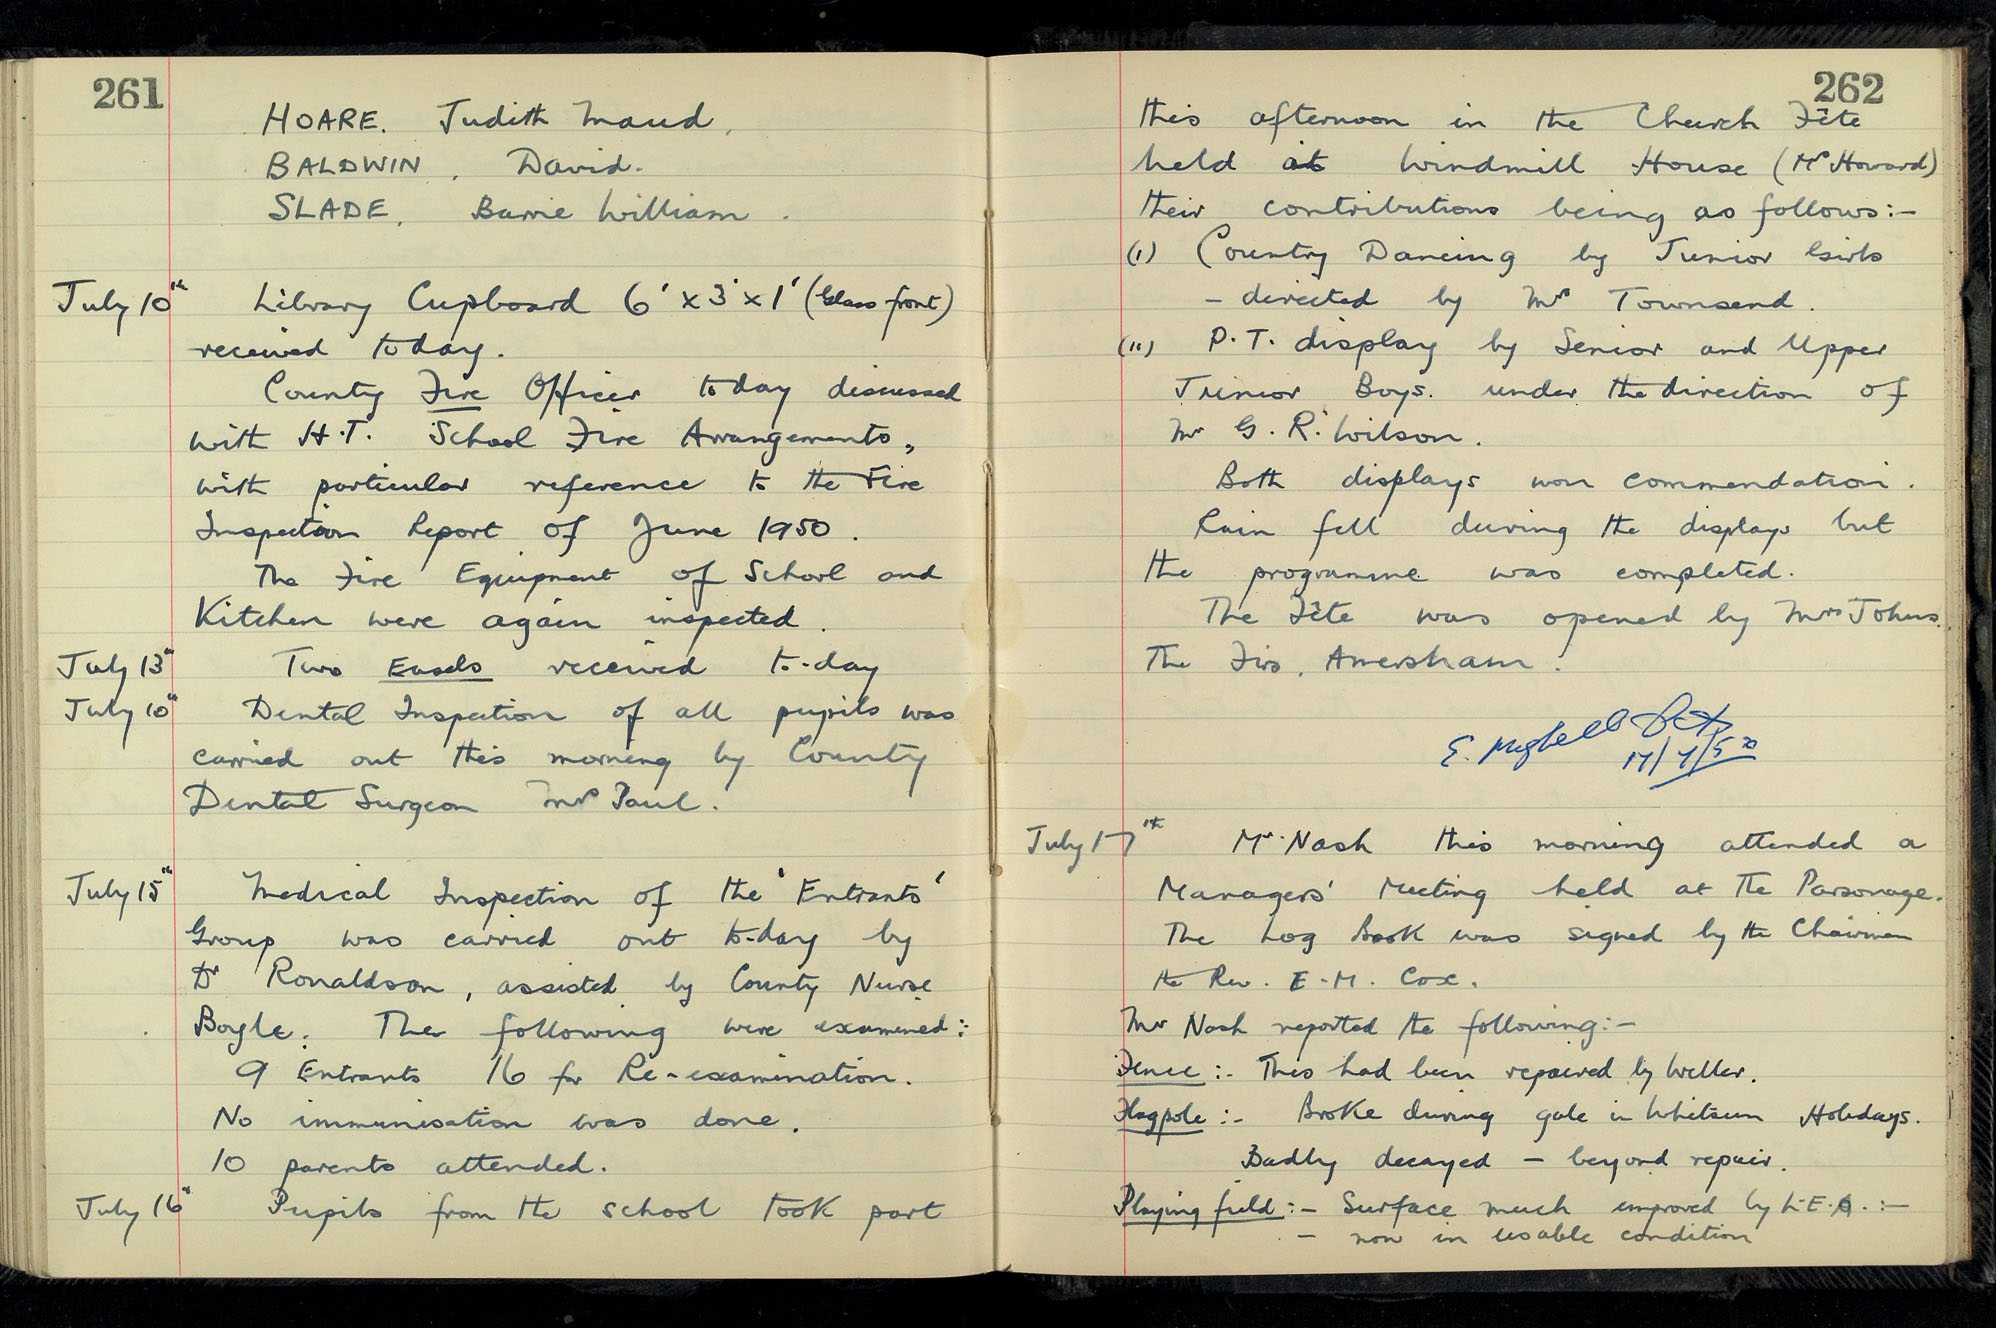 261
HOARE. Judith Maud.
BALDWIN, David.
SLADE, Barrie William.
July 10th Library Cupboard 6' x 3' x 1' (Glass front)
received today.
County Fire Officer today discussed
with H.T. School Fire Arrangements,
with particular reference to the Fire
Inspection Report of June 1950.
The Fire Equipment of School and
Kitchen were again inspected.
July 13th Two Easels received to-day
July 10th Dental Inspection of all pupils was
carried out this morning by County
Dental Surgeon Mr Paul.
July 15th Medical Inspection of the 'Entrants'
Group was carried out to-day by
Dr Ronaldson, assisted by County Nurse
Boyle. The following were examined:-
9 Entrants 16 for Re-examination.
No immunisation was done.
10 parents attended.
July 16th Pupils from the school took part
262
this afternoon in the Church Fête
held at Windmill House (Mr Howard)
their contributions being as follows:-
(i) Country Dancing by Junior Girls
- directed by Mrs Townsend.
(ii) P.T. display by Senior and Upper
Junior Boys. under the direction of
Mr G. R. Wilson.
Both displays won commendation.
Rain fell during the displays but
the programme was completed.
The Fête was opened by Mrs Johns.
The Firs, Amersham.
E. Cox
17/7/50
July 17th Mr. Nash this morning attended a
Managers' Meeting held at The Parsonage.
The Log Book was signed by the Chairman
the Rev. E.M. Cox.
Mr Nash reported the following:-
Fence :- This had been repaired by Weller.
Flagpole :- Broke during gale in Whitsun Holidays.
Badly decayed - beyond repair.
Playing field :- Surface much improved by L.E.A. :-
- now in usable condition